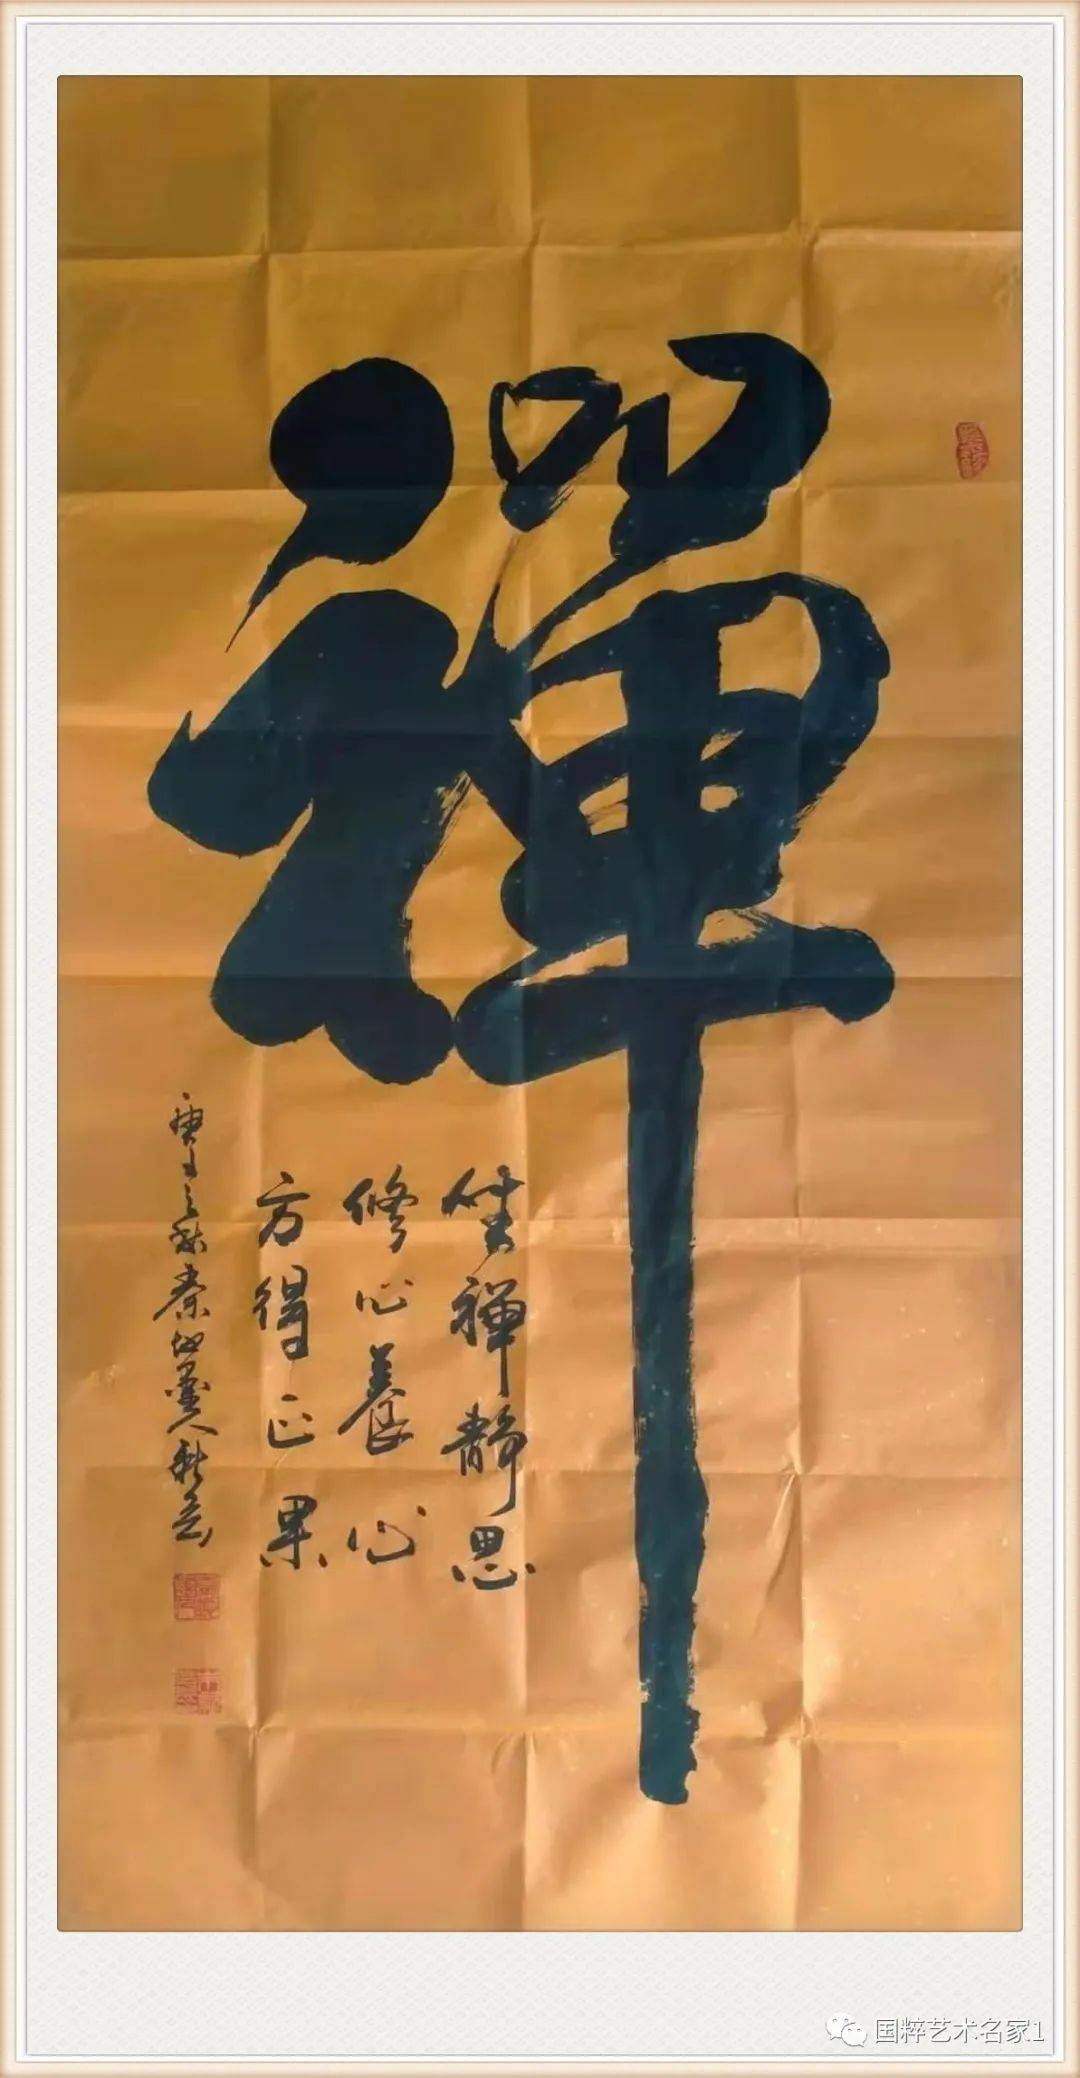 禪
坐禪静思
修心養心
方得正果
庚子之秋秦地墨人
国粹艺术名家1